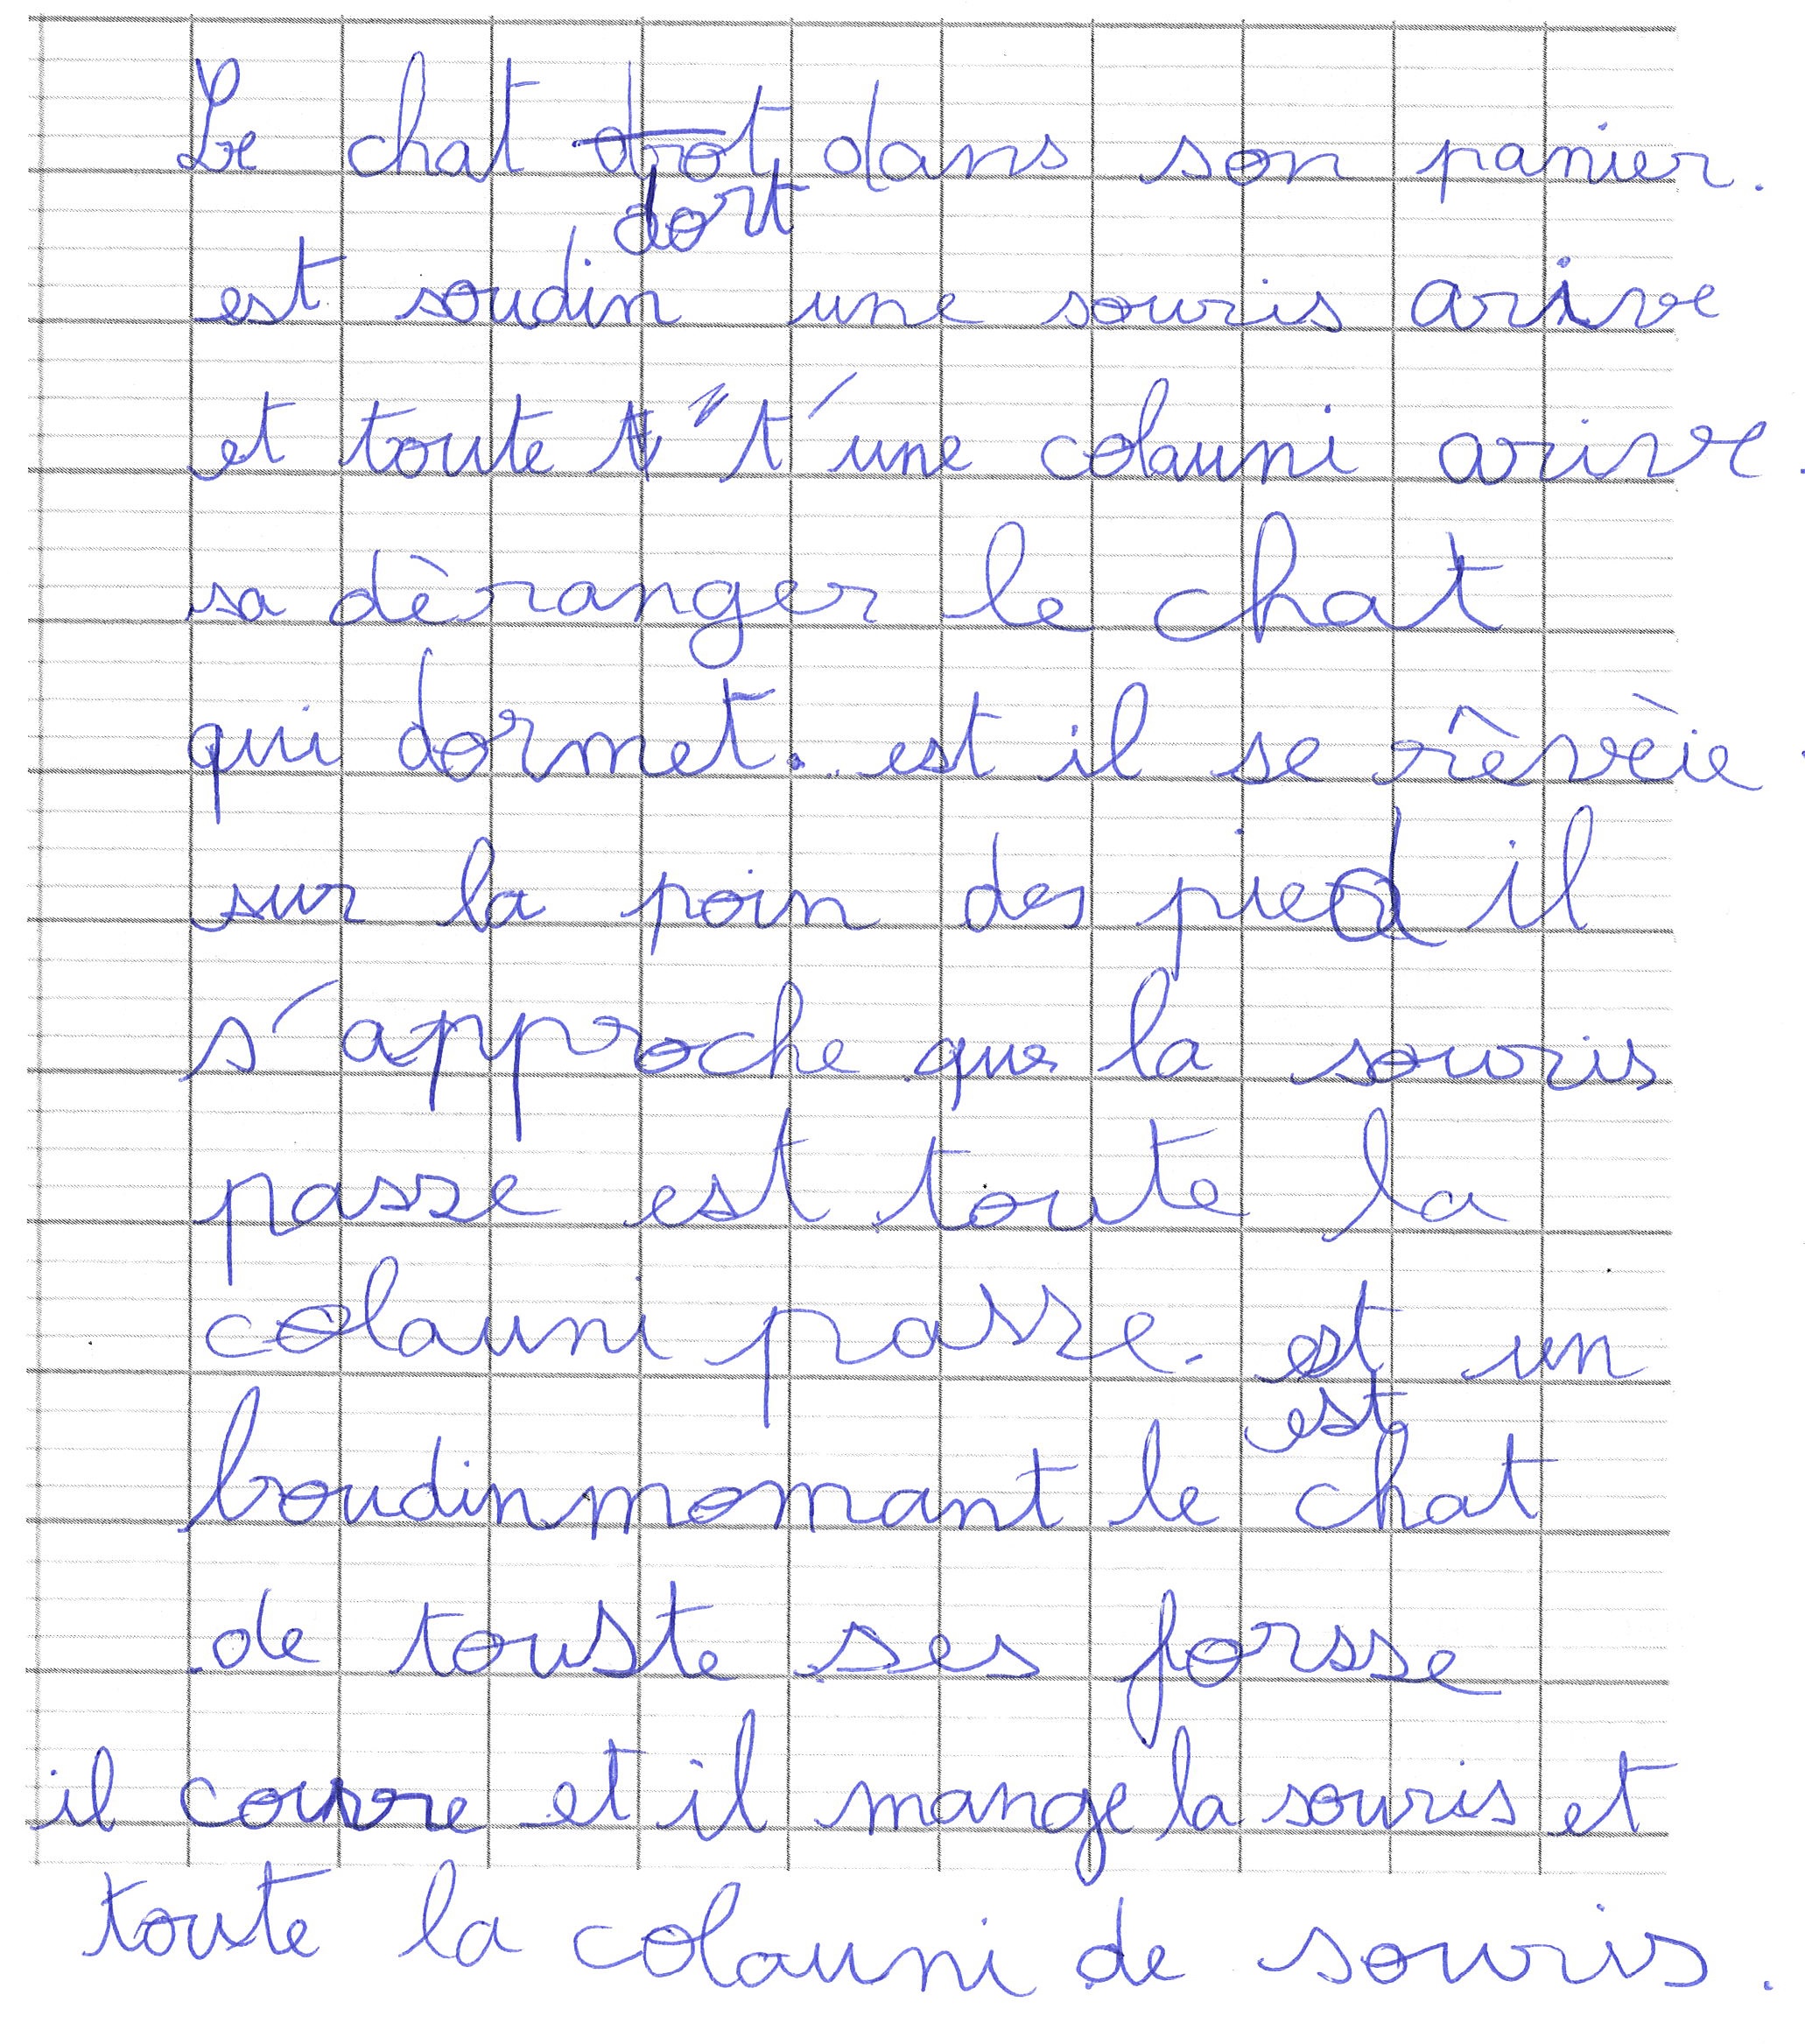 Le chat drot dans son panier.
dort
est soudin une souris arive
et toute t't'une colauni arive.
sa dèranger le chat
qui dormet. est il se rêvèie
sur la poin des pied il
s'approche que la souris
passe est toute la
colauni passe. est un
est
boudinmomant le chat
de touste ses forsse
il courre et il mange la souris et
toute la colauni de souris.